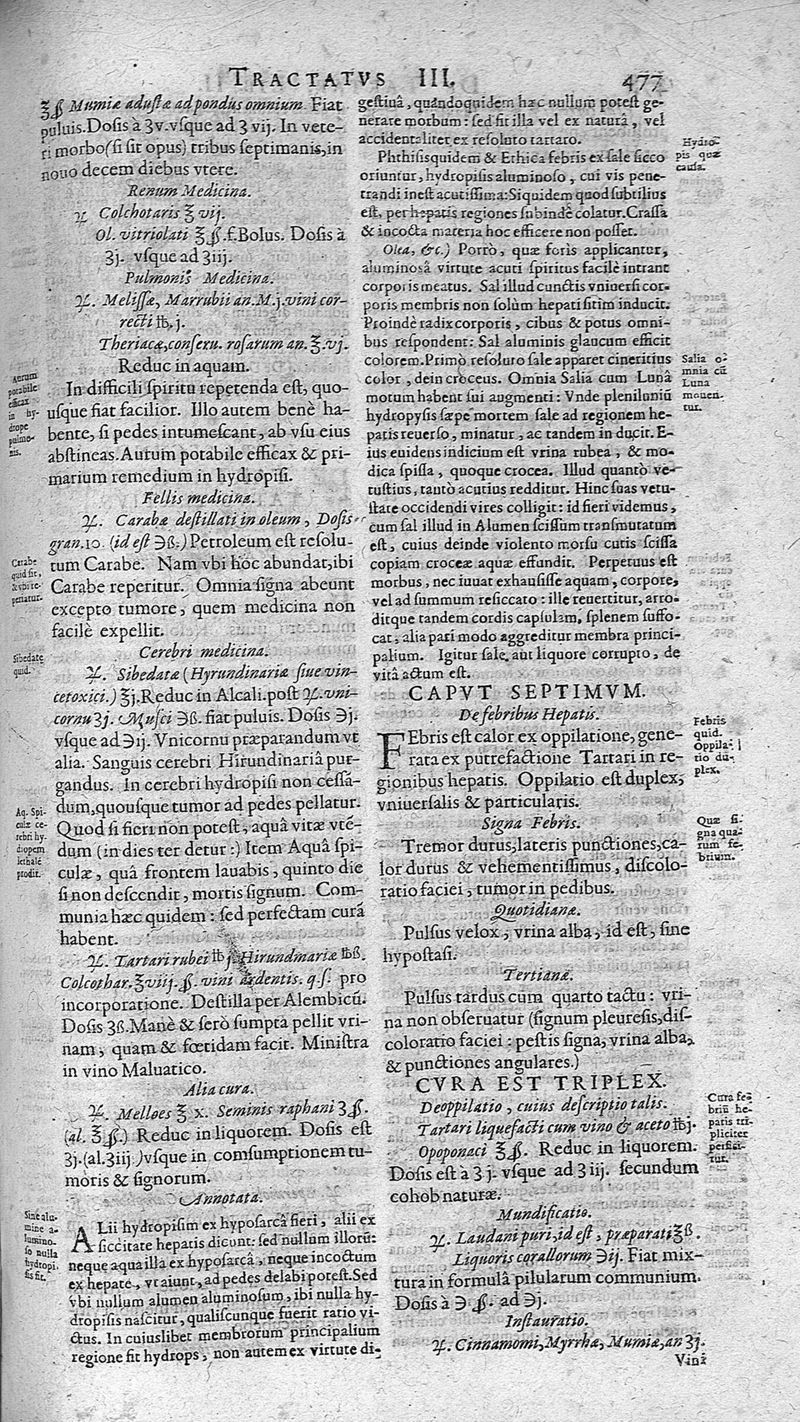 TRACTATVS III. 477
℥ß Mumiæ adustæ ad pondus omnium. Fiat
puluis. Dosis à ʒv. vsque ad ʒ vij. In vete-
ri morbo (si sit opus) tribus septimanis, in
nouo decem diebus vtere.
Renum Medicina.
♃ Colchotaris ℥ vij.
Ol. vitriolati ℥ß. f. Bolus. Dosis à
ʒj. vsque ad ʒiij.
Pulmonis Medicina.
♃. Melissæ, Marrubii an. M.j. vini cor-
recti ℔.j.
Theriacæ, conseru. rosarum an. ℥.vj.
Reduc in aquam.
In difficili spiritu repetenda est, quo-
usque fiat facilior. Illo autem benè ha-
bente, si pedes intumescant, ab vsu eius
abstineas. Aurum potabile efficax & pri-
marium remedium in hydropisi.
Aurum
potabile
efficax
in hy-
drope
pulmo-
nis.
Fellis medicina.
♃. Carabæ destillati in oleum, Dosis
gran. 10. (id est ℈ß.) Petroleum est resolu-
tum Carabe. Nam vbi hoc abundat, ibi
Carabe reperitur. Omnia signa abeunt
excepto tumore, quem medicina non
facilè expellit.
Carabe
quid sit,
& vbi re-
periatur.
Cerebri medicina.
♃. Sibedatæ (Hyrundinariæ siue vin-
cetoxici.) ℥j. Reduc in Alcali. post ♃. vni-
cornu ʒj. Musci ℈ß. fiat puluis. Dosis ℈j.
vsque ad ℈ij. Vnicornu præparandum vt
alia. Sanguis cerebri Hirundinariâ pur-
gandus. In cerebri hydropisi non cessa-
dum, quousque tumor ad pedes pellatur.
Quod si fieri non potest, aquâ vitæ vtē-
dum (in dies ter detur:) Item Aquâ spi-
culæ, quâ frontem lauabis, quinto die
si non descendit, mortis signum. Com-
munia hæc quidem: sed perfectam curā
habent.
Sibedate
quid.
Aq. Spi-
culæ ce-
rebri hy-
dropem
lethalē
prodit.
♃. Tartari rubei ℔j. Hirundinariæ ℔ß.
Colcothar. ℥viij. ß. vini ardentis. q.s. pro
incorporatione. Destilla per Alembicū.
Dosis ʒß. Manè & serò sumpta pellit vri-
nam, quam & fœtidam facit. Ministra
in vino Maluatico.
Alia cura.
♃. Melloes ℥ x. Seminis raphani ʒß.
(al. ℥ß.) Reduc in liquorem. Dosis est
ʒj. (al. ʒiij.) vsque in comsumptionem tu-
moris & signorum.
Annotata.
ALii hydropisim ex hyposarcâ fieri, alii ex
siccitate hepatis dicunt: sed nullum illorū:
neque aqua illa ex hyposarcâ, neque incoctum
ex hepate, vt aiunt, ad pedes delabi potest. Sed
vbi nullum alumen aluminosum, ibi nulla hy-
dropisis nascitur, qualiscunque fuerit ratio vi-
ctus. In cuiuslibet membrorum principalium
regione fit hydrops, non autem ex virtute di-
Sine alu-
mine a-
lumino-
so nulla
hydropi-
sis fit.
gestiuâ, quandoquidem hæc nullum potest ge-
nerare morbum: sed fit illa vel ex naturâ, vel
accidentaliter ex resoluto tartaro.
Phthisis quidem & Ethica febris ex sale sicco
oriuntur, hydropisis aluminoso, cui vis pene-
trandi inest acutissima: Siquidem quod subtilius
est, per hepatis regiones subindè colatur. Crassa
& incocta materia hoc efficere non posset.
Hydro-
pis quæ
causa.
Olea, &c.) Porrò, quæ foris applicantur,
aluminosâ virtute acuti spiritus facilè intrant
corporis meatus. Sal illud cunctis vniuersi cor-
poris membris non solùm hepati sitim inducit.
Proindè radix corporis, cibus & potus omni-
bus respondent: Sal aluminis glaucum efficit
colorem. Primò resoluto sale apparet cineritius
color, dein croceus. Omnia Salia cum Lunâ
motum habent sui augmenti: Vnde pleniluniū
hydropysis sæpe mortem sale ad regionem he-
patis reuerso, minatur, ac tandem inducit. E-
ius euidens indicium est vrina rubea, & mo-
dica spissa, quoque crocea. Illud quantò ve-
tustius, tantò acutius redditur. Hinc suas vetu-
state occidendi vires colligit: id fieri videmus,
cum sal illud in Alumen scissum transmutatum
est, cuius deinde violento morsu cutis scissa
copiam croceæ aquæ effundit. Perpetuus est
morbus, nec iuuat exhausisse aquam, corpore,
vel ad summum resiccato: ille reuertitur, arro-
ditque tandem cordis capsulam, splenem suffo-
cat, alia pari modo aggreditur membra princi-
palium. Igitur sale aut liquore corrupto, de
vitâ actum est.
Salia o-
mnia cū
Luna
mouen-
tur.
CAPVT SEPTIMVM.
De febribus Hepatis.
FEbris est calor ex oppilatione, gene-
rata ex putrefactione Tartari in re-
gionibus hepatis. Oppilatio est duplex,
vniuersalis & particularis.
Febris
quid.
Oppila-
tio du-
plex.
Signa Febris.
Tremor durus, lateris punctiones, ca-
lor durus & vehementissimus, discolo-
ratio faciei, tumor in pedibus.
Quæ si-
gna qua-
rum fe-
brium.
Quotidianæ.
Pulsus velox, vrina alba, id est, sine
hypostasi.
Tertianæ.
Pulsus tardus cum quarto tactu: vri-
na non obseruatur (signum pleuresis, dis-
coloratio faciei: pestis signa, vrina alba,
& punctiones angulares.)
CVRA EST TRIPLEX.
Deoppilatio, cuius descriptio talis.
Tartari liquefacti cum vino & aceto ℔j.
Opoponaci ℥ß. Reduc in liquorem.
Dosis est à ʒ j. vsque ad ʒ iij. secundum
cohob naturæ.
Cura fe-
briū he-
patis tri-
pliciter
perfici-
tur.
Mundificatio.
♃. Laudani puri, id est, præparati ℥ß.
Liquoris corallorum ℈ij. Fiat mix-
tura in formulâ pilularum communium.
Dosis à ℈.ß. ad ℈j.
Instauratio.
♃. Cinnamomi, Myrrhæ, Mumiæ, an ʒj.
Vini